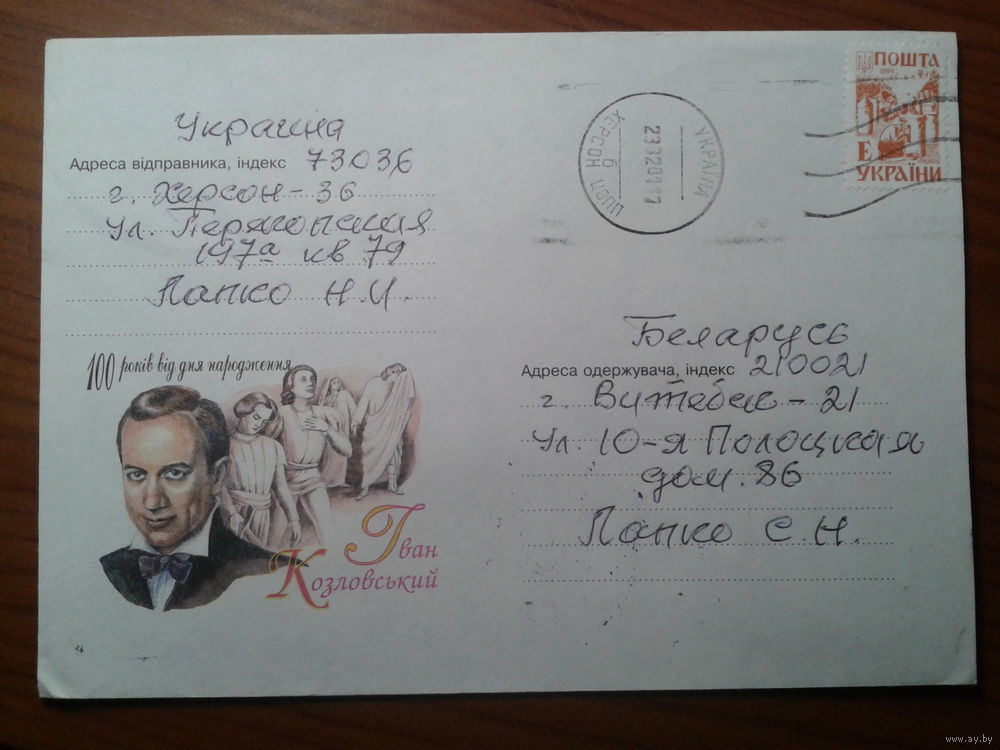 Украина
Адреса відправника, індекс 73036
г. Херсон-36
ул. Перекопская
197а кв 79
Папко Н.И.
100 років від дня народження
Іван
Козловський
УКРАЇНА
ХЕРСОН 6
ПОШТА
1994
Е
УКРАЇНИ
Беларусь
Адреса одержувача, індекс 210021
г. Витебск-21
ул. 10-я Полоцкая
дом. 86
Папко С.Н.
www.ay.by